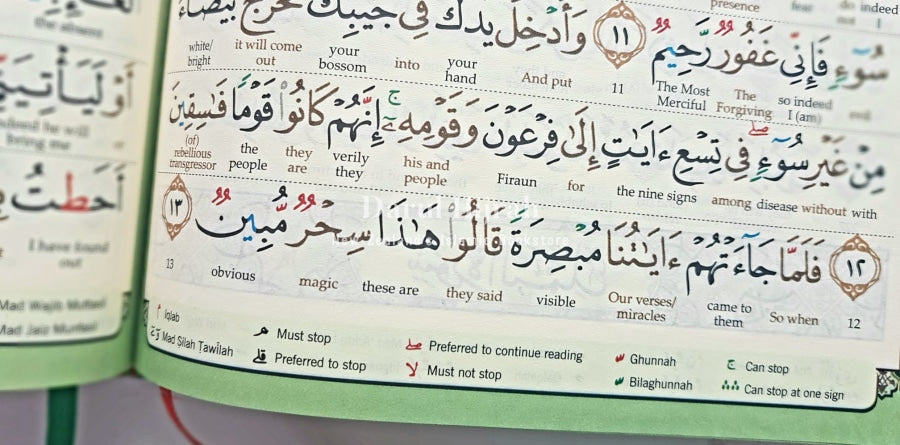 presence fear do indeed
سُوٓءٍ فَإِنِّي غَفُورٌ رَّحِيمٌ ١١ وَأَدْخِلْ يَدَكَ فِي جَيْبِكَ تَخْرُجْ بَيْضَآءَ
evil so indeed I (am) The Forgiving The Most Merciful 11 And put your hand into your bossom it will come out white/ bright
مِنْ غَيْرِ سُوٓءٍ فِي تِسْعِ ءَايَٰتٍ إِلَىٰ فِرْعَوْنَ وَقَوْمِهِۦٓ إِنَّهُمْ كَانُوا۟ قَوْمًا فَٰسِقِينَ
with without disease among the nine signs for Firaun his and people verily they they are the people (of) rebellious transgressor
١٢ فَلَمَّا جَآءَتْهُمْ ءَايَٰتُنَا مُبْصِرَةً قَالُوا۟ هَٰذَا سِحْرٌ مُّبِينٌ ١٣
12 So when came to them Our verses/ miracles visible they said these are magic obvious 13
Iqlab
Mad Silah Tawilah
Must stop
Preferred to stop
Preferred to continue reading
Must not stop
Ghunnah
Bilaghunnah
Can stop
Can stop at one sign
أَوْ لَيَأْتِيَنِّي
bring me
أَحَطتُ
I have found out
Mad Wajib Muttasil
Mad Jaiz Munfasil